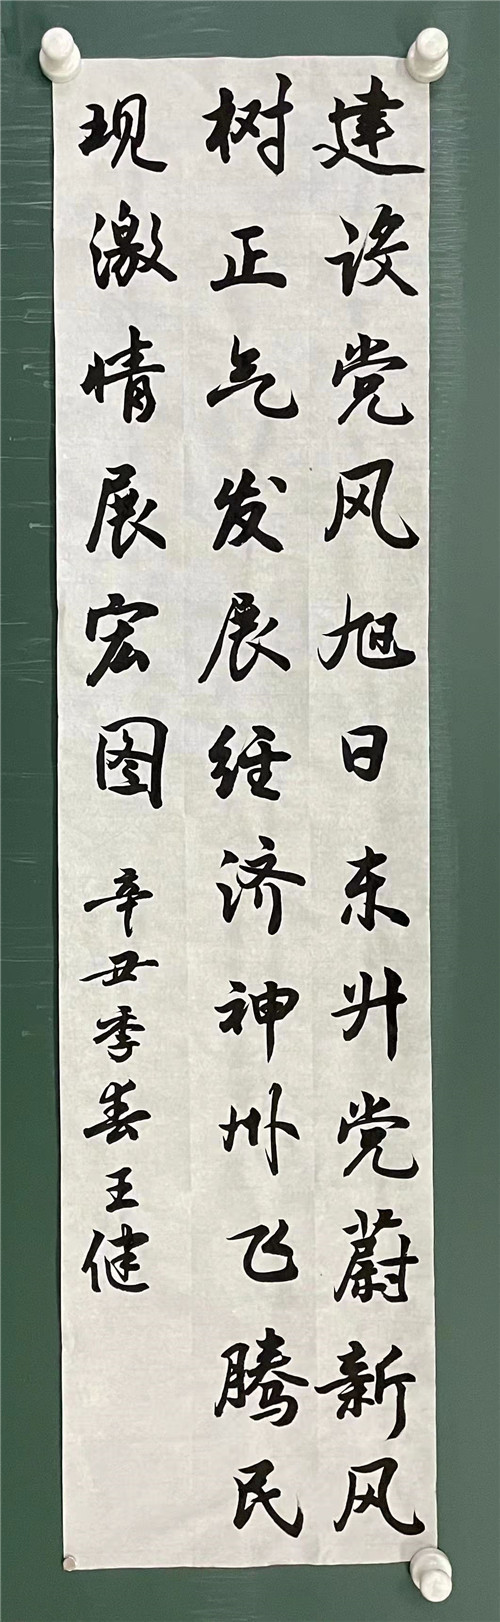 建设党风旭日东升党蔚新风
树正气发展经济神州飞腾民
现激情展宏图 辛丑季春王健